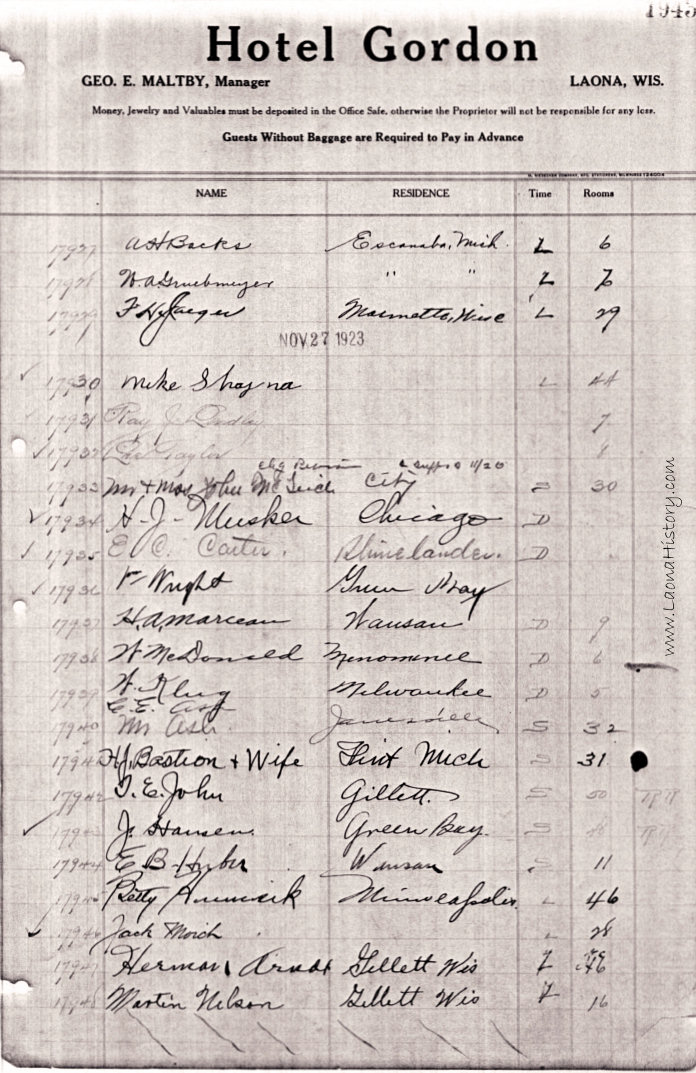 1945
Hotel Gordon
GEO. E. MALTBY, Manager LAONA, WIS.
Money, Jewelry and Valuables must be deposited in the Office Safe, otherwise the Proprietor will not be responsible for any loss.
Guests Without Baggage are Required to Pay in Advance
NAME RESIDENCE Time Rooms
17927 A H Backs Escanaba, Mich. L 6
17928 " " L
17929 F H Jaeger Wisc L 29
NOV 27 1923
17930 Mike L 44
17931 Ray J. 7
17932 Taylor 8
17933 Mr + Mrs John City S 30
17934 H-J- Musker Chicago D
17935 E. C. Carter. Rhinelander. D
17936 Wright Green Bay
17937 H.A. Marceau Wausau D 9
17938 W McDonald Menominee D 6
17939 W. Klug Milwaukee D 5
17940 Mr Ash. Janesville S 32
17941 H.J. Bastion + Wife Flint Mich S 31
17942 T. E. John Gillett. S 50
17943 J. Hansen. Green Bay. S
17944 E B Huber Wausau S 11
17945 Betty Minneapolis. L 46
17946 Jack L 28
17947 Herman Arndt Gillett Wis
17948 Martin Nelson Gillett Wis 16
www.LaonaHistory.com